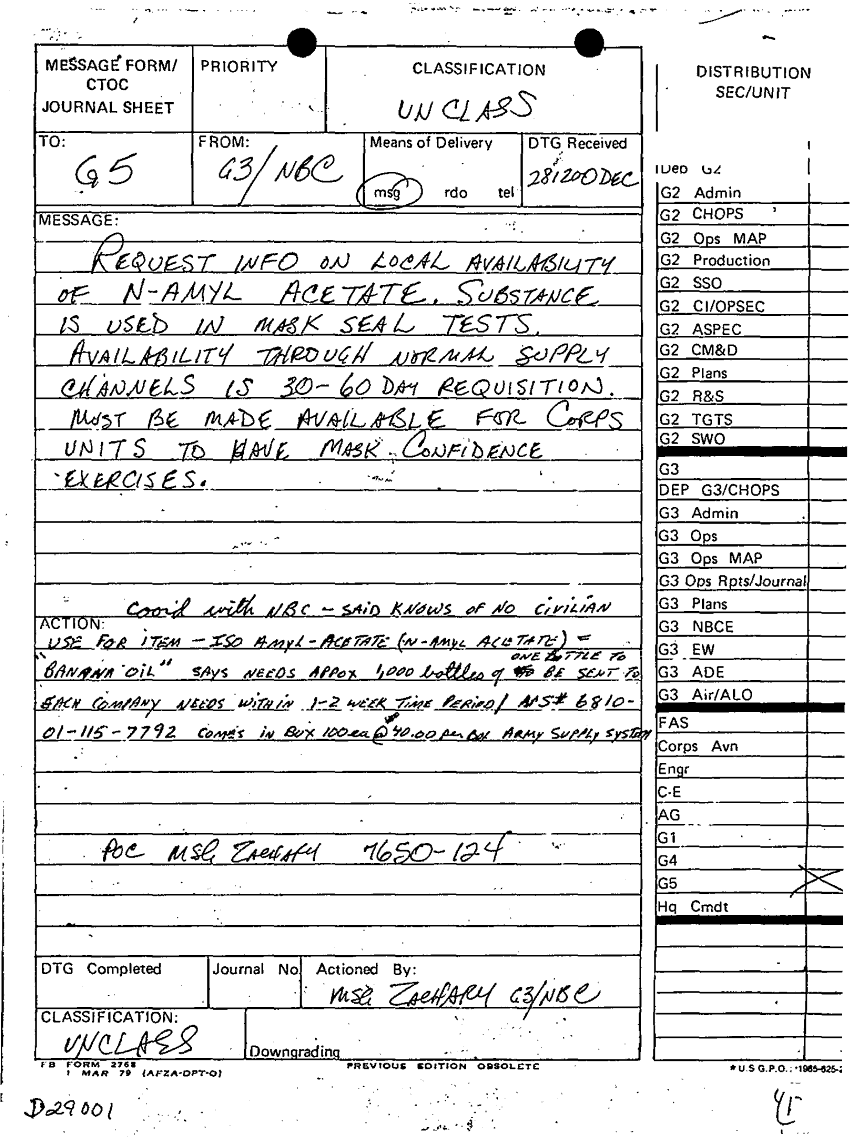 MESSAGE FORM/
CTOC
JOURNAL SHEET
PRIORITY
CLASSIFICATION
UNCLASS
TO:
G5
FROM:
G3/NBC
Means of Delivery
msg rdo tel
DTG Received
281200DEC
MESSAGE:
REQUEST INFO ON LOCAL AVAILABILITY
OF N-AMYL ACETATE. SUBSTANCE
IS USED IN MASK SEAL TESTS.
AVAILABILITY THROUGH NORMAL SUPPLY
CHANNELS IS 30-60 DAY REQUISITION.
MUST BE MADE AVAILABLE FOR CORPS
UNITS TO HAVE MASK CONFIDENCE
EXERCISES.
Coord with NBC - SAID KNOWS OF NO CIVILIAN
ACTION:
USE FOR ITEM - ISO AMYL-ACETATE (N-AMYL ACETATE) =
"BANANA OIL" SAYS NEEDS APPOX 1,000 bottles of ONE BOTTLE TO BE SENT TO
EACH COMPANY NEEDS WITHIN 1-2 WEEK TIME PERIOD/ 6810-
01-115-7792 COMES IN BOX 100 ea @ 40.00 per BOX ARMY SUPPLY SYSTEM
POC MSG ZACHARY 7650-124
DTG Completed
Journal No
Actioned By:
MSG ZACHARY G3/NBC
CLASSIFICATION:
UNCLASS
Downgrading
FB FORM 2768
1 MAR 79 (AFZA-DPT-O)
PREVIOUS EDITION OBSOLETE
D29001
DISTRIBUTION
SEC/UNIT
Dep G2
G2 Admin
G2 CHOPS
G2 Ops MAP
G2 Production
G2 SSO
G2 CI/OPSEC
G2 ASPEC
G2 CM&D
G2 Plans
G2 R&S
G2 TGTS
G2 SWO
G3
DEP G3/CHOPS
G3 Admin
G3 Ops
G3 Ops MAP
G3 Ops Rpts/Journal
G3 Plans
G3 NBCE
G3 EW
G3 ADE
G3 Air/ALO
FAS
Corps Avn
Engr
C-E
AG
G1
G4
G5 X
Hq Cmdt
*U.S G.P.O.: 1985-625-